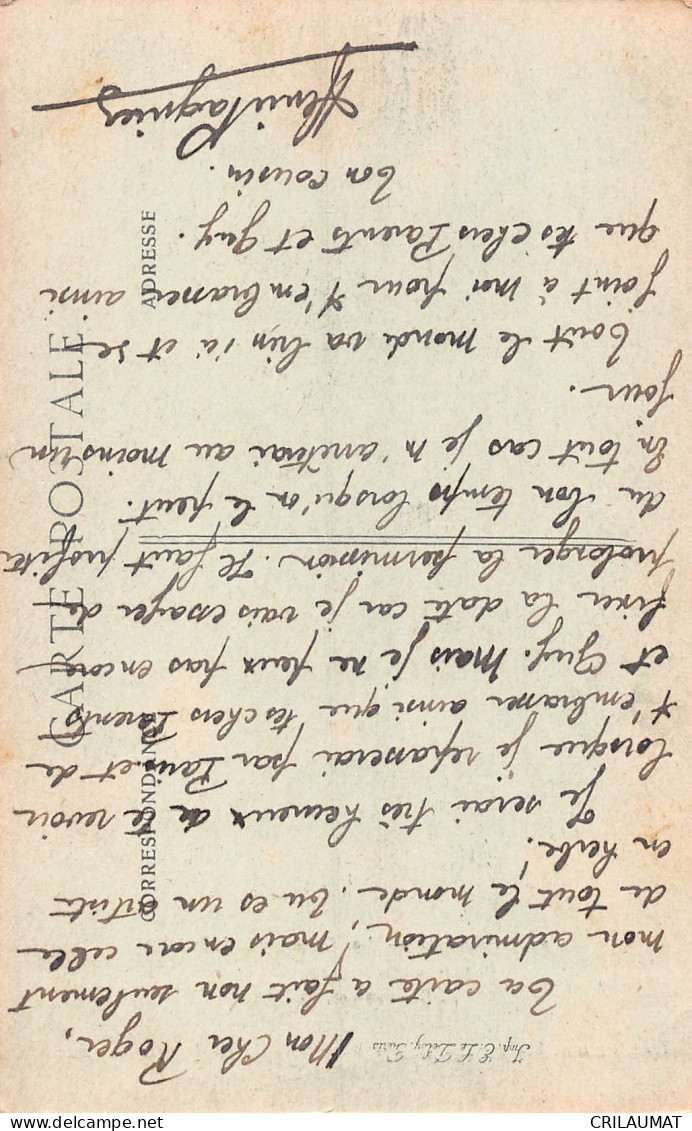 Mon Cher Roger,
Ta carte a fait non seulement
mon admiration, mais encore celle
de tout le monde. Tu es un artiste
en herbe!
Je serai très heureux de te revoir
lorsque je repasserai par Paris et de
t'embrasser ainsi que tes chers Parents
et Guy. Mais je ne peux pas encore
fixer la date car je vais essayer de
prolonger la permission. Il faut profiter
du bon temps lorsqu'on le peut.
En tout cas je m'arrêterai au moins un
jour.
Tout le monde va bien ici et se
joint à moi pour t'embrasser ainsi
que tes chers Parents et Guy.
Ton cousin.
Henri
CARTE POSTALE
CORRESPONDANCE
ADRESSE
Imp. E. Le Deley, Paris
CRILAUMAT